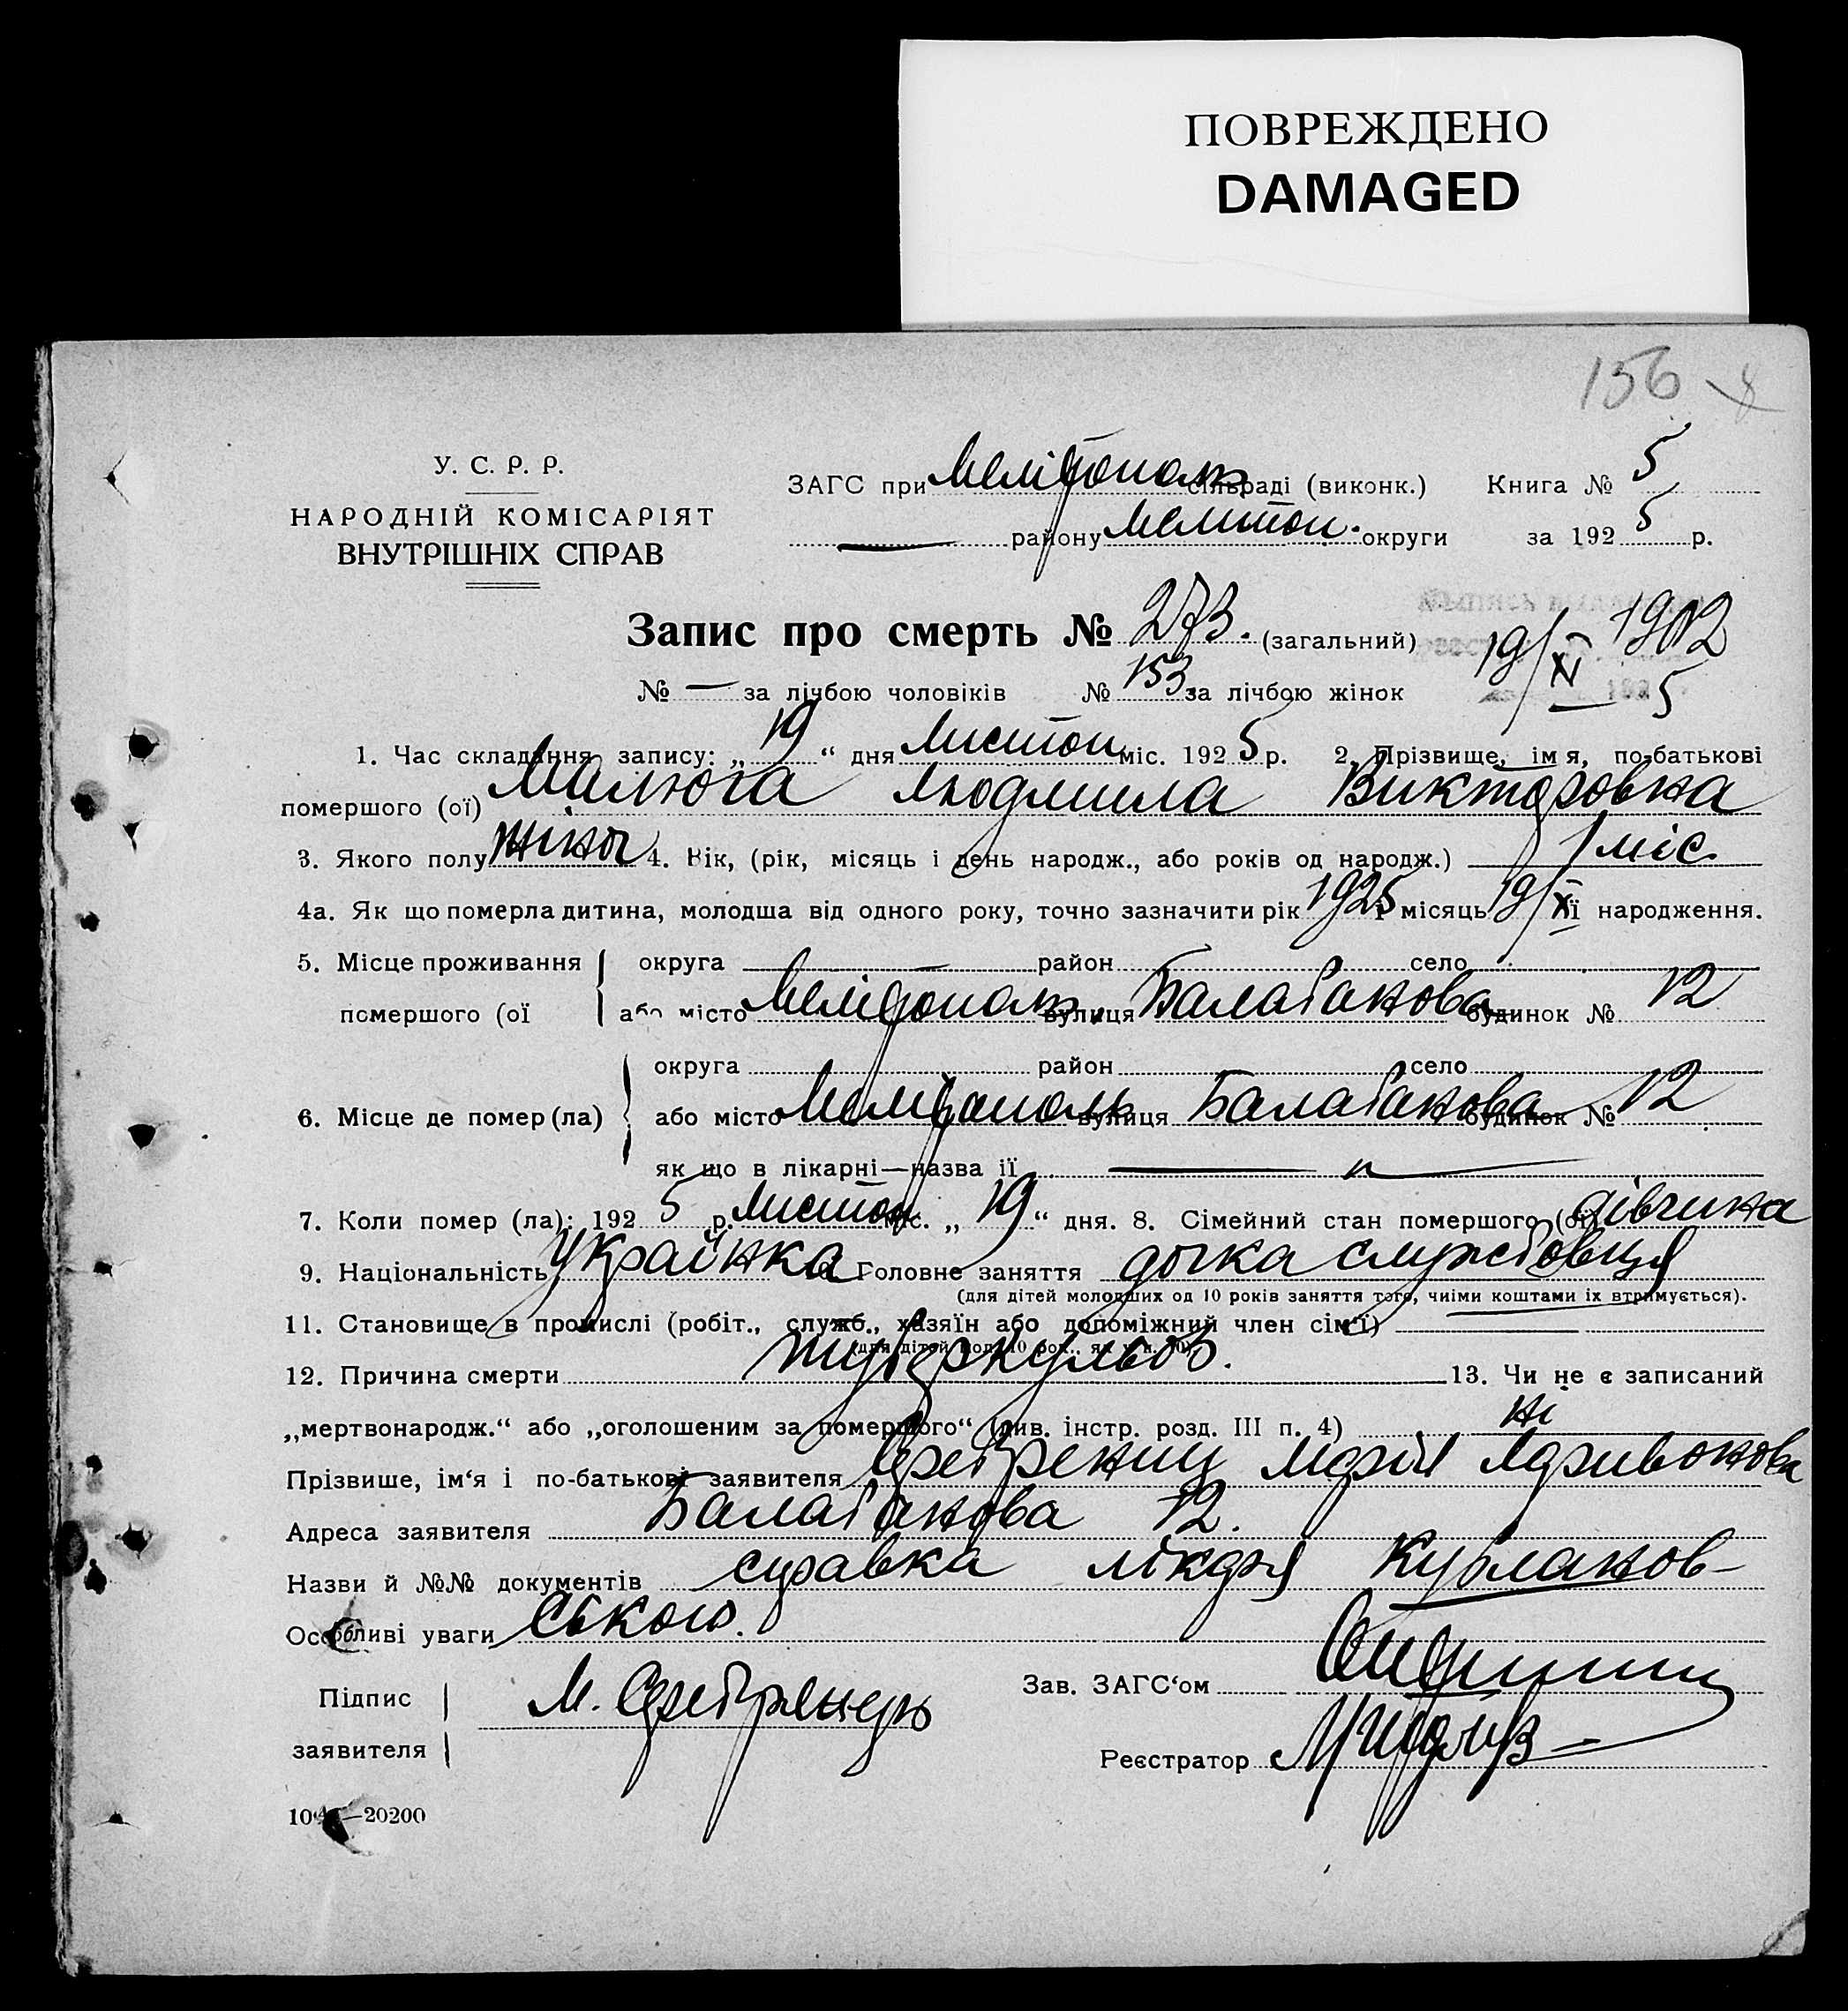 ПОВРЕЖДЕНО
DAMAGED
156
У. С. Р. Р.
НАРОДНІЙ КОМІСАРІЯТ
ВНУТРІШНІХ СПРАВ
ЗАГС при Мелітополь сільраді (виконк.) Книга № 5
— району Мелитоп. округи за 192 5 р.
Запис про смерть № 273. (загальний)
19/XI 1902
5
№ — за лічбою чоловіків № 153 за лічбою жінок
1. Час складання запису: „ 19 “ дня Листоп міс. 192 5 р. 2. Прізвище, імя, по-батькові
помершого (ої) Малюга Людмила Викторовна
3. Якого полу жіноч 4. Вік, (рік, місяць і день народж., або років од народж.) 1 міс.
4а. Як що померла дитина, молодша від одного року, точно зазначити рік 1925 і місяць 19/X її народження.
5. Місце проживання округа — район село
помершого (ої або місто Мелітополь вулиця Балабанова будинок № 12
округа район село
6. Місце де помер (ла) або місто Мелітополь вулиця Балабанова будинок № 12
як що в лікарні—назва її — " —
7. Коли помер (ла): 192 5 р. Листоп міс. „ 19 “ дня. 8. Сімейний стан помершого (ої) дівчина
9. Національність Українка 10. Головне заняття дочка службовця
(для дітей молодших од 10 років заняття того, чиїми коштами їх втримується).
11. Становище в промислі (робіт., служб., хазяїн або допоміжний член сім‘ї) —
(для дітей мол. 10 рок., як у п. 10)
12. Причина смерти туберкульоз. 13. Чи не є записаний
„мертвонародж.“ або „оголошеним за помершого“ (див. інстр. розд. III п. 4) ні
Прізвище, ім‘я і по-батькові заявителя Марія
Адреса заявителя Балабанова 12.
Назви й №№ документів справка лікаря Курланов-
Особливі уваги ського.
Підпис
заявителя М.
Зав. ЗАГС‘ом
Реєстратор
—20200